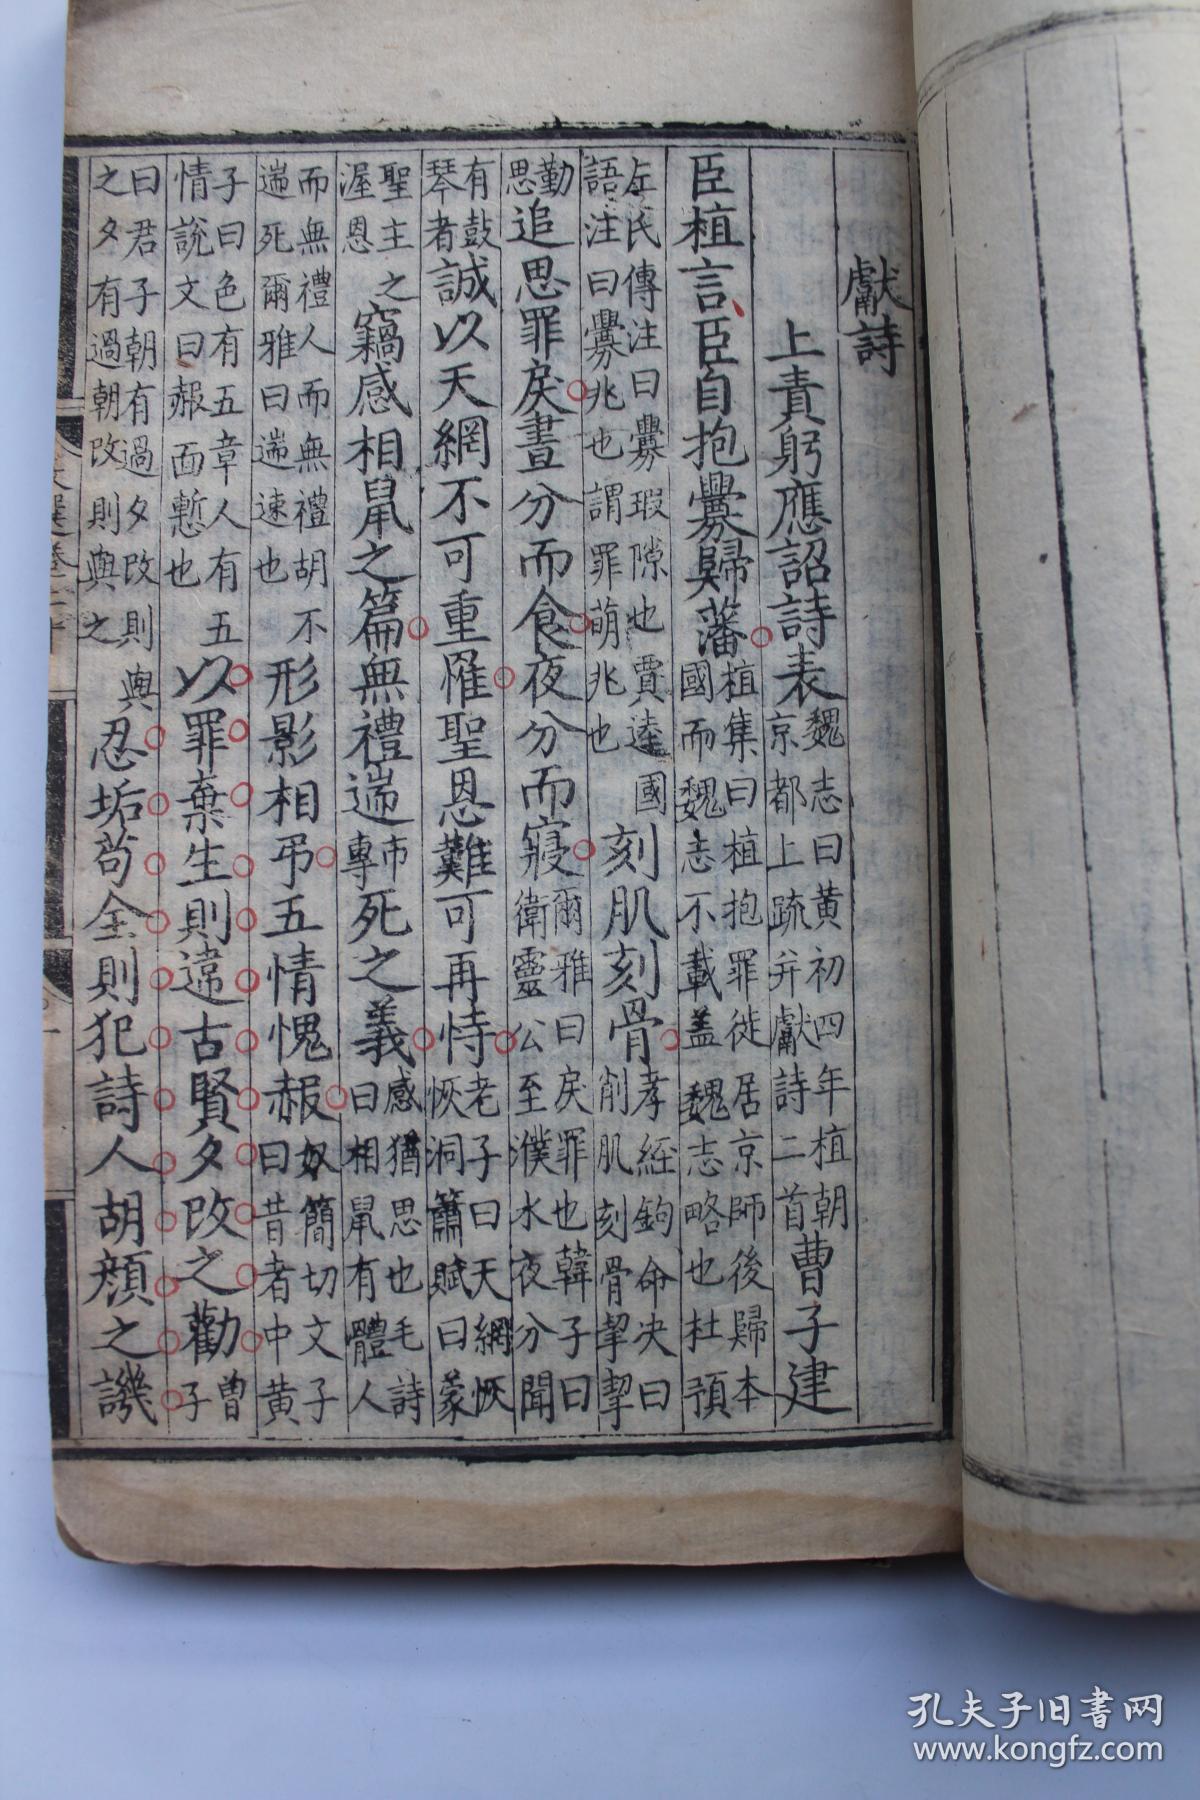 獻詩
上責躬應詔詩表魏志曰黃初四年植朝京都上疏并獻詩二首曹子建
臣植言臣自抱釁歸藩植集曰植抱罪徙居京師後歸本國而魏志不載蓋魏志略也杜預
左氏傳注曰釁瑕隙也賈逵國語注曰釁兆也謂罪萌兆也刻肌刻骨孝經鉤命决曰削肌刻骨挈挈
勤思追思罪戾晝分而食夜分而寢爾雅曰戾罪也韓子曰衛靈公至濮水夜分聞
有鼓琴者誠以天網不可重罹聖恩難可再恃老子曰天網恢恢洞簫賦曰蒙
聖主之渥恩竊感相鼠之篇無禮遄市專死之義感猶思也毛詩曰相鼠有體人
而無禮人而無禮胡不遄死爾雅曰遄速也形影相弔五情愧赧奴簡切文子曰昔者中黃
子曰色有五章人有五情說文曰赧面慙也以罪棄生則違古賢夕改之勸曾子
曰君子朝有過夕改則與之夕有過朝改則與之忍垢苟全則犯詩人胡顏之譏
文選卷二十
孔夫子旧书网
www.kongfz.com